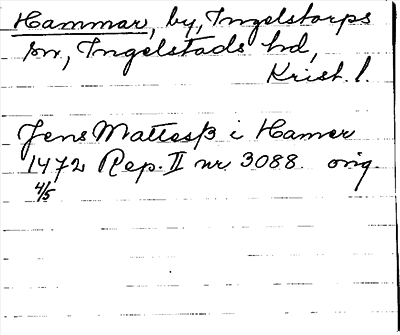 Hammar, by, Ingelstorps
sn, Ingelstads hd,
Krist. l.
Jens Mattesß i Hamer
1472 Rep. II nr 3088. orig.
4/5